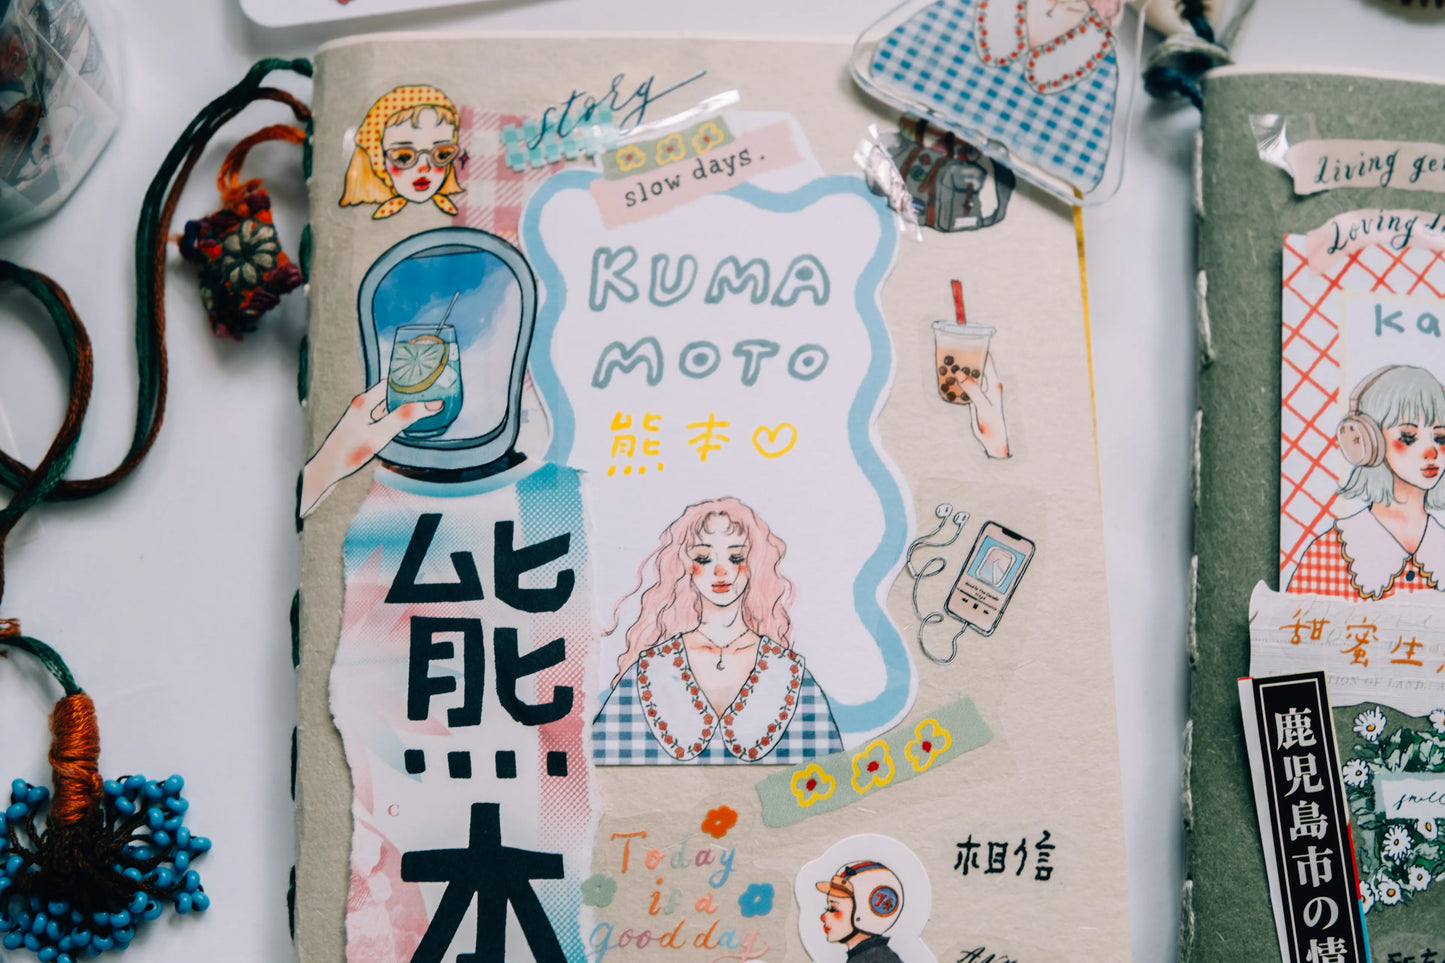 story
slow days.
KUMA
MOTO
熊本
熊本
Today
is a
good day
相信
Living
Loving
Ka
甜蜜生
鹿児島市の情